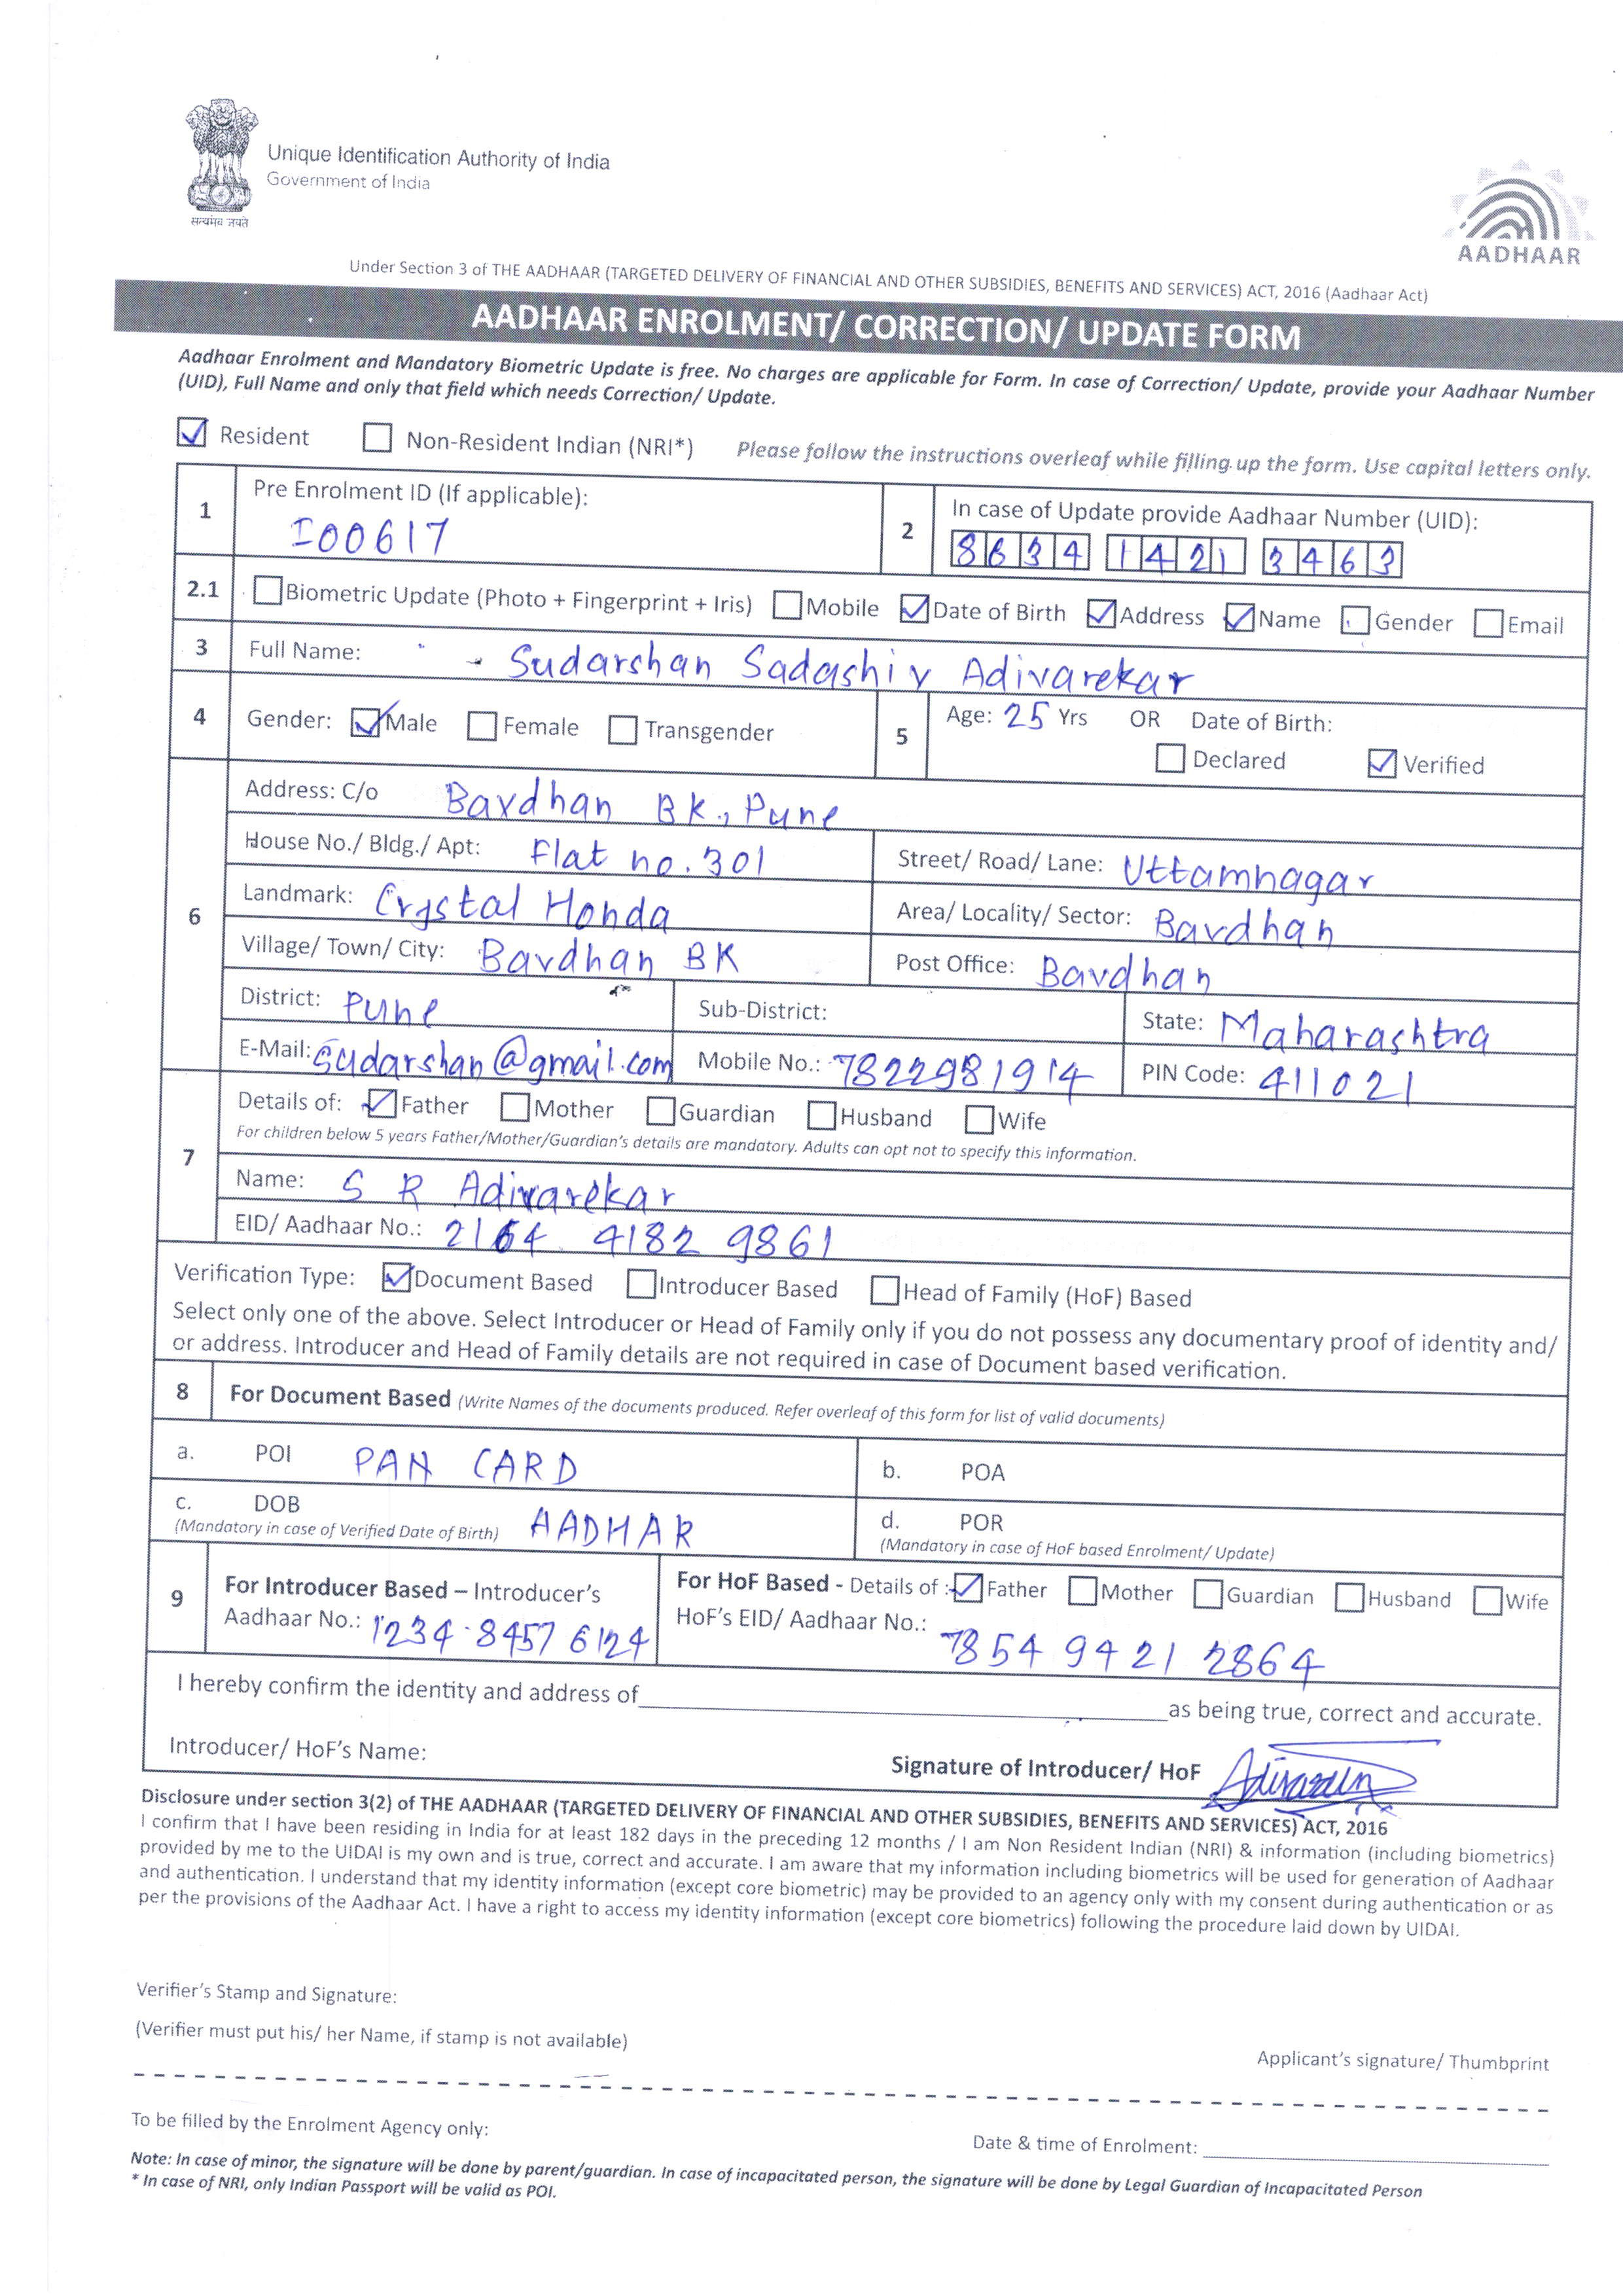 सत्यमेव जयते
Unique Identification Authority of India
Government of India
AADHAAR
Under Section 3 of THE AADHAAR (TARGETED DELIVERY OF FINANCIAL AND OTHER SUBSIDIES, BENEFITS AND SERVICES) ACT, 2016 (Aadhaar Act)
AADHAAR ENROLMENT/ CORRECTION/ UPDATE FORM
Aadhaar Enrolment and Mandatory Biometric Update is free. No charges are applicable for Form. In case of Correction/ Update, provide your Aadhaar Number
(UID), Full Name and only that field which needs Correction/ Update.
Resident Non-Resident Indian (NRI*) Please follow the instructions overleaf while filling up the form. Use capital letters only.
1 Pre Enrolment ID (If applicable): 2 In case of Update provide Aadhaar Number (UID):
I00617 8634 1421 3463
2.1 Biometric Update (Photo + Fingerprint + Iris) Mobile Date of Birth Address Name Gender Email
3 Full Name: Sudarshan Sadashiv Adivarekar
4 Gender: Male Female Transgender 5 Age: 25 Yrs OR Date of Birth:
Declared Verified
6 Address: C/o Bavdhan BK., Pune
House No./ Bldg./ Apt: Flat no. 301 Street/ Road/ Lane: Uttamnagar
Landmark: Crystal Honda Area/ Locality/ Sector: Bavdhan
Village/ Town/ City: Bavdhan BK Post Office: Bavdhan
District: Pune Sub-District: State: Maharashtra
E-Mail: Sudarshan@gmail.com Mobile No.: 7822981914 PIN Code: 411021
7 Details of: Father Mother Guardian Husband Wife
For children below 5 years Father/Mother/Guardian's details are mandatory. Adults can opt not to specify this information.
Name: S R Adivarekar
EID/ Aadhaar No.: 2164 4182 9861
Verification Type: Document Based Introducer Based Head of Family (HoF) Based
Select only one of the above. Select Introducer or Head of Family only if you do not possess any documentary proof of identity and/
or address. Introducer and Head of Family details are not required in case of Document based verification.
8 For Document Based (Write Names of the documents produced. Refer overleaf of this form for list of valid documents)
a. POI PAN CARD b. POA
c. DOB AADHAR d. POR
(Mandatory in case of Verified Date of Birth) (Mandatory in case of HoF based Enrolment/ Update)
9 For Introducer Based – Introducer's For HoF Based - Details of : Father Mother Guardian Husband Wife
Aadhaar No.: 1234 8457 6124 HoF's EID/ Aadhaar No.: 7854 9421 2864
I hereby confirm the identity and address of as being true, correct and accurate.
Introducer/ HoF's Name: Signature of Introducer/ HoF
Disclosure under section 3(2) of THE AADHAAR (TARGETED DELIVERY OF FINANCIAL AND OTHER SUBSIDIES, BENEFITS AND SERVICES) ACT, 2016
I confirm that I have been residing in India for at least 182 days in the preceding 12 months / I am Non Resident Indian (NRI) & information (including biometrics)
provided by me to the UIDAI is my own and is true, correct and accurate. I am aware that my information including biometrics will be used for generation of Aadhaar
and authentication. I understand that my identity information (except core biometric) may be provided to an agency only with my consent during authentication or as
per the provisions of the Aadhaar Act. I have a right to access my identity information (except core biometrics) following the procedure laid down by UIDAI.
Verifier's Stamp and Signature:
(Verifier must put his/ her Name, if stamp is not available)
Applicant's signature/ Thumbprint
To be filled by the Enrolment Agency only:
Date & time of Enrolment:
Note: In case of minor, the signature will be done by parent/guardian. In case of incapacitated person, the signature will be done by Legal Guardian of Incapacitated Person
* In case of NRI, only Indian Passport will be valid as POI.